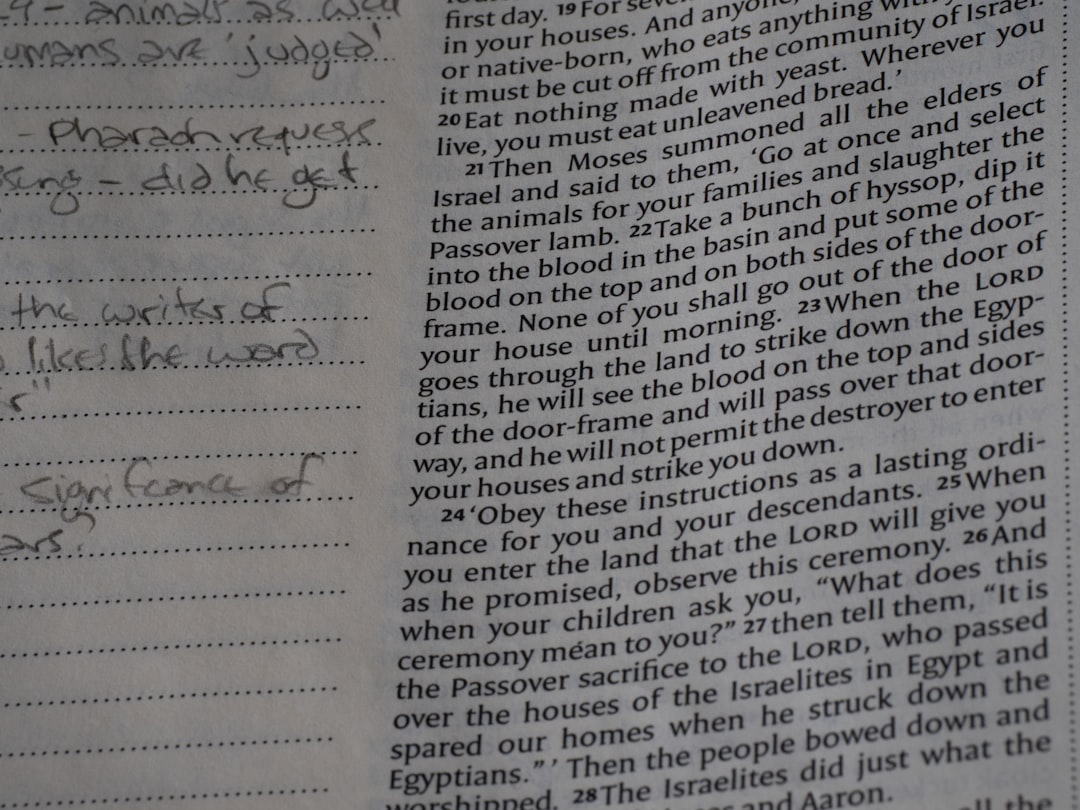 animals as well
umans are 'judged'
- Pharaoh requess
sing - did he get
the writer of
likes the word
significance of
first day. 19 For
in your houses. And anyone,
or native-born, who eats anything with
it must be cut off from the community of Israel.
20 Eat nothing made with yeast. Wherever you
live, you must eat unleavened bread.'
21 Then Moses summoned all the elders of
Israel and said to them, 'Go at once and select
the animals for your families and slaughter the
Passover lamb. 22 Take a bunch of hyssop, dip it
into the blood in the basin and put some of the
blood on the top and on both sides of the door-
frame. None of you shall go out of the door of
your house until morning. 23 When the LORD
goes through the land to strike down the Egyp-
tians, he will see the blood on the top and sides
of the door-frame and will pass over that door-
way, and he will not permit the destroyer to enter
your houses and strike you down.
24 'Obey these instructions as a lasting ordi-
nance for you and your descendants. 25 When
you enter the land that the LORD will give you
as he promised, observe this ceremony. 26 And
when your children ask you, "What does this
ceremony mean to you?" 27 then tell them, "It is
the Passover sacrifice to the LORD, who passed
over the houses of the Israelites in Egypt and
spared our homes when he struck down the
Egyptians."' Then the people bowed down and
worshipped. 28 The Israelites did just what the
and Aaron.
all the